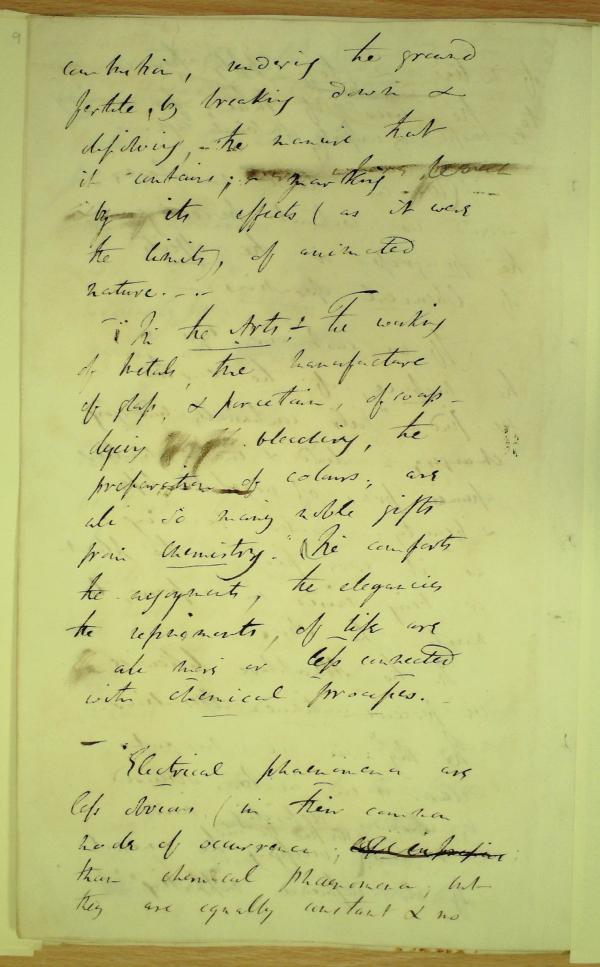 9
combustion, rendering the ground
fertile, by breaking down &
dissolving, the manure that
it contains;
by its effects (as it were
the limits), of animated
nature. - -
In the Arts, The working
of Metals, the manufacture
of glass, & porcelain, of soap -
dying bleaching, the
preparation of colours; are
all so many noble gifts
from chemistry." The comforts
the enjoyments, the elegancies
the refinements, of life are
all more or less connected
with chemical processes. -
— "Electrical phaenomena are
less obvious (in their common
mode of occurrence;
than chemical phaenomena, but
they are equally constant & no